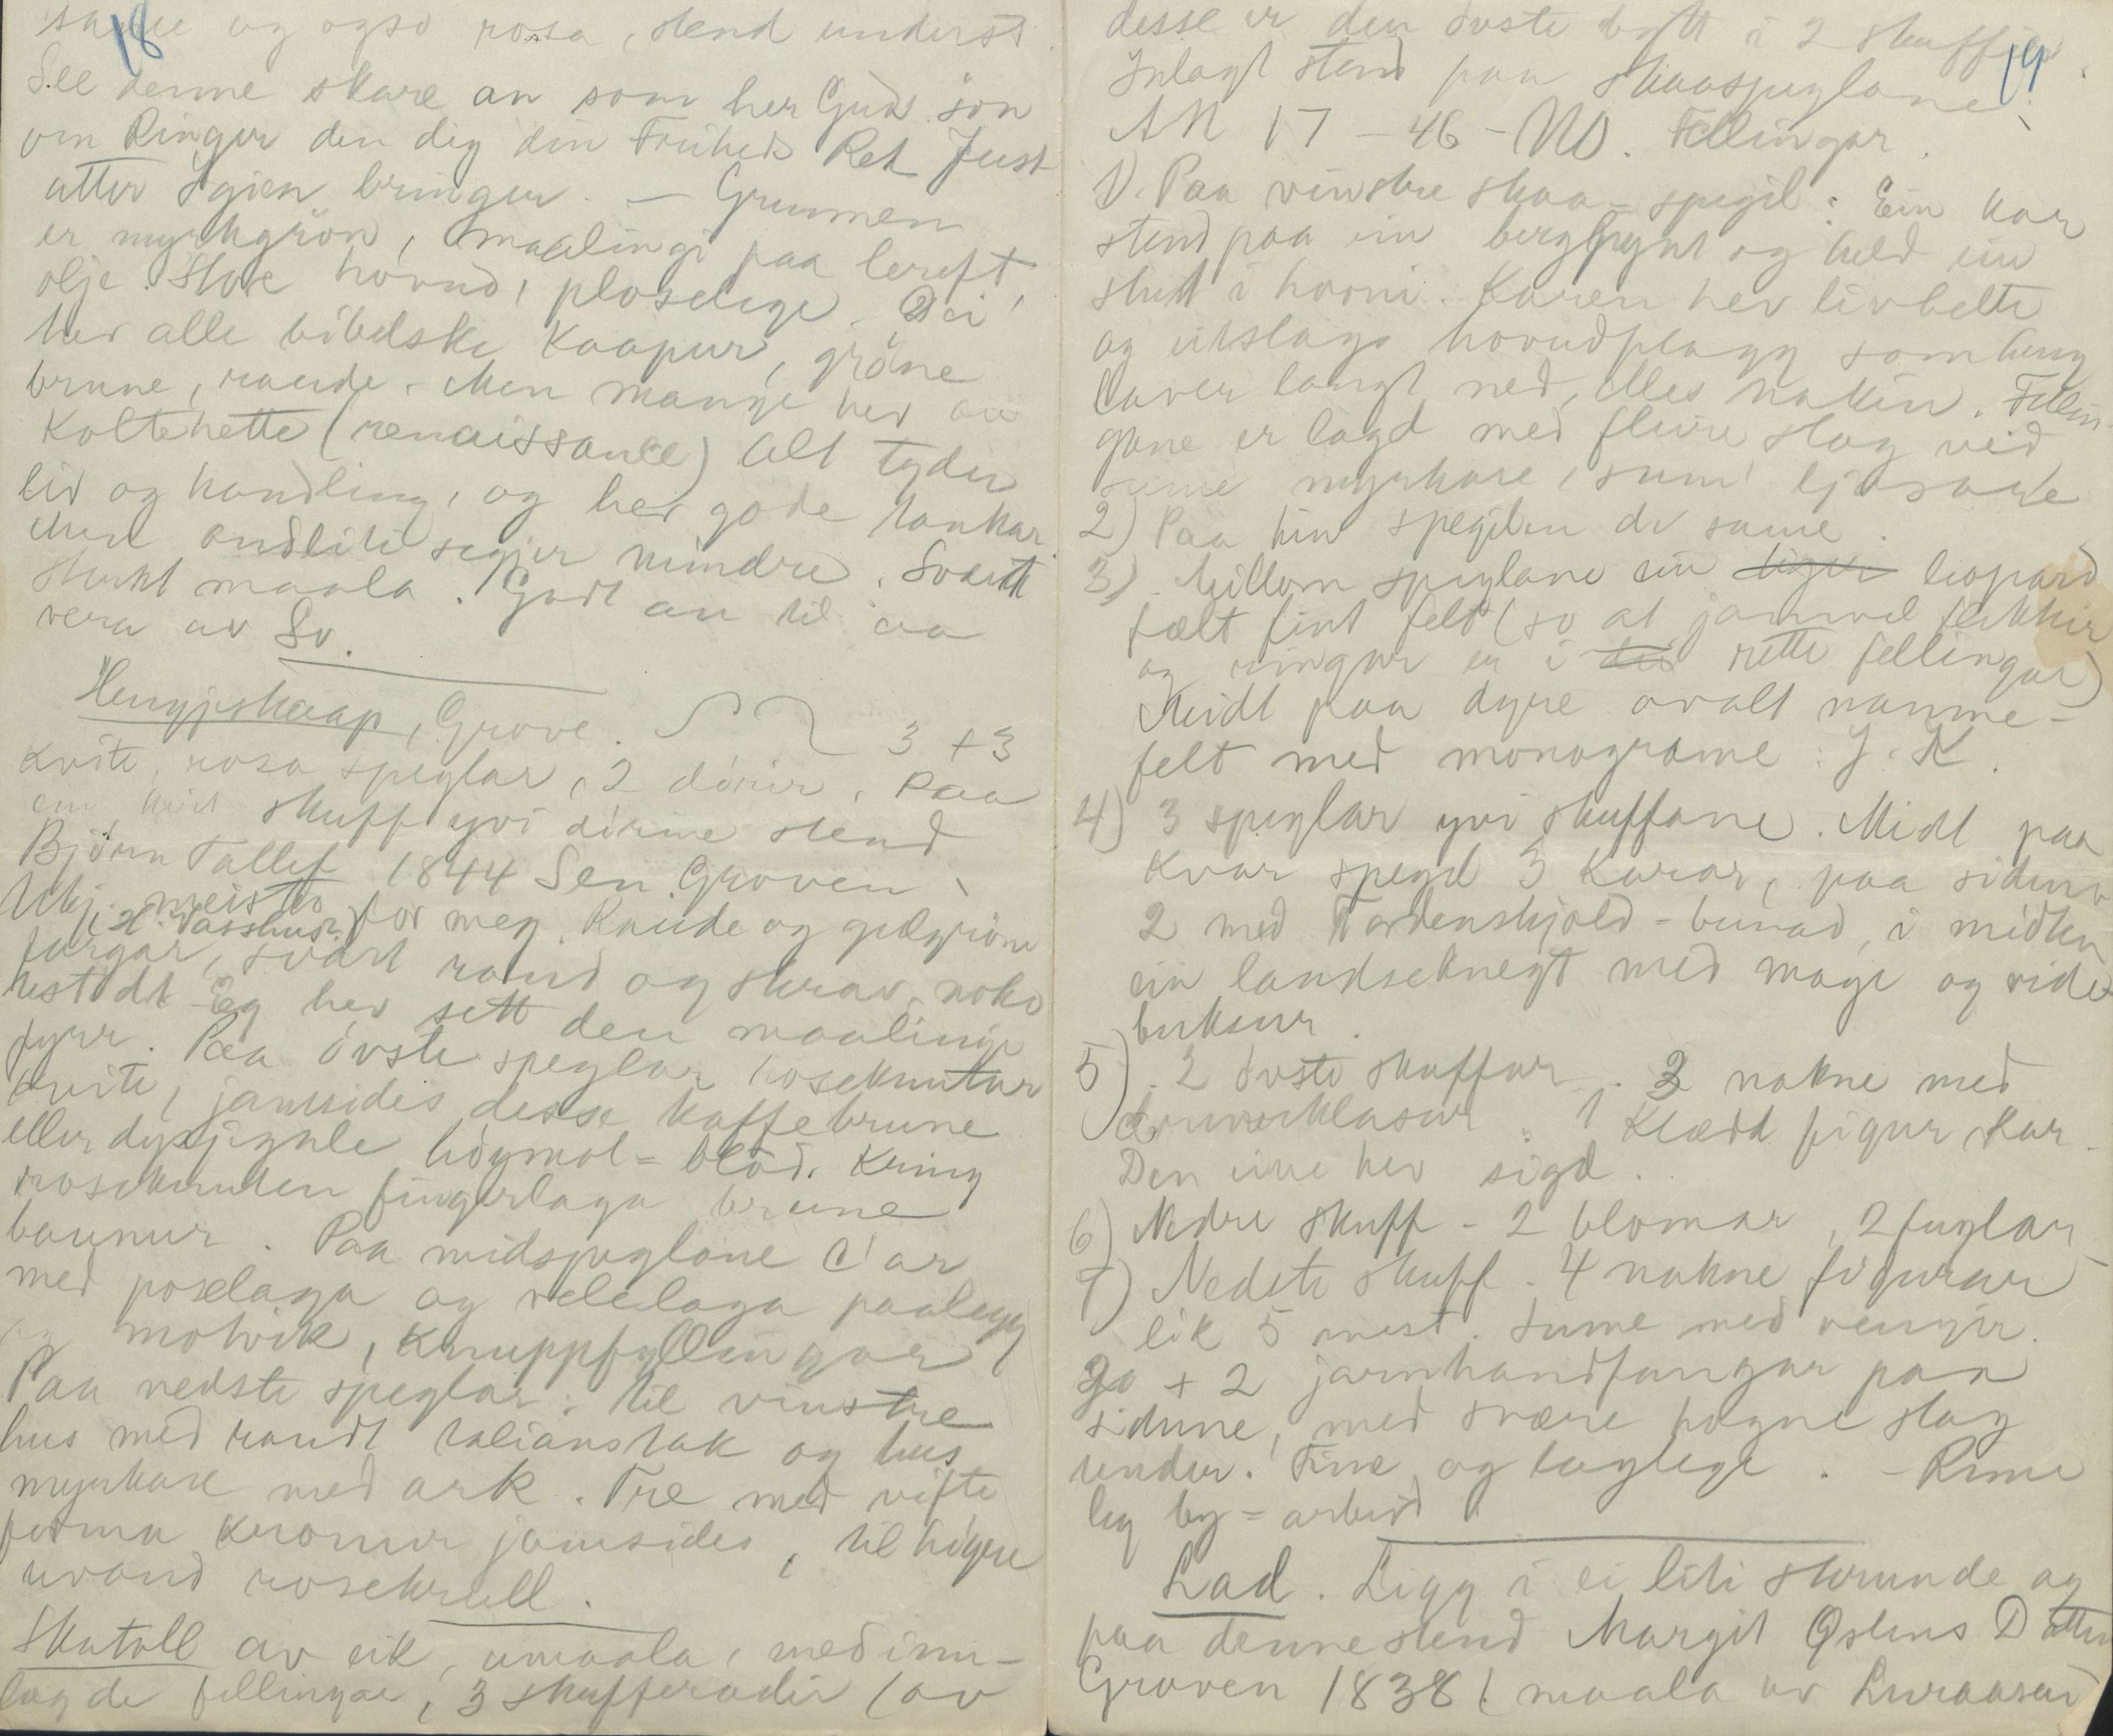 18
same og ogso rosa, stend underst.
See denne skare an som her Guds søn
om Ringer den dig din Friheds Ret Just
atter Igien bringer. — Grunnen
er myrkgrøn, maalingi paa lereft,
olje. Store hovud, ploselege. Dei
hev alle bibelske Kaapur, grøne
brune, raude. Men mange hev au
Koltehette (renaissance) Alt tyder
liv og handling, og hev gode tankar.
Men andliti segjer mindre. Svært
sterkt maala. Godt an til aa
vera av Sv.
Hengjeskaap, Grove. 3 + 3
kvite, rosa speglar, 2 dørir. Paa
ein skuff yvi dørine stend
Bjørn Tallef 1844 Sen Groven
Ukj. meister for meg. Raude og gulgrøne
(H. Vasshus?)
fargar, svart rand og skrav, noko
ustødt. Eg hev sett den maalingi
fyrr. Paa øvste speglar roseknutar
kvite, jamsides desse kaffebrune
eller dyrjignle høymol=blød. Kring
roseknuten fingerlaga brune
baunur. Paa midspeglane C'ar
med poselaga og velelaga paalegg
og motvik, Knuppfyllingar
Paa nedste speglar: til vinstre
hus med raudt valianstak og hus
myrkare med ark. Tre med vifte
forma Kronur jamsides, til høgre
uvand rosekrull.
Skatoll av eik, umaala, med inn-
lagde fellingar, 3 skufferadir (av
19
desse er den øvste bytt i 2 skuffir.
Inlagt stend paa skaaspeglane:
AN 17 – 46 – ND. Fellingar.
1) Paa vinstre skaa=spegil: Ein kar
stend paa ein bergknynt og held ein
stutt i horni. Karen hev livbelte
og utslags hovudplagg som heng
laver langt ned, elles naken. Fellin-
gane er lagd med fleire slag ved
sume myrkare, sume ljosare
2) Paa hin spegilen de same.
3) Millom speglane ein tiger leopard
fælt fint felt (so at jamvel flekkir
og ringar er i dei rette fellingar)
Midt paa dyre ovalt namne-
felt med monograme: J. K.
4) 3 speglar yvi skuffane. Midt paa
kvar spegel 3 Karar, paa sidune
2 med Tordenskjold=bunad, i midten
ein landseknegt med mage og vide
buksur.
5) 2 øvste skuffur. 2 nakne med
druvurklasur. 1 Klædd figur kar.
Den eine hev sigd.
6) Nedre skuff – 2 blomar, 2 fuglar
7) Nedste skuff. 4 nakne figurar
lik 5 mest. Sume med vengir.
2 + 2 jarnhandfangar paa
sidune, med svære hogne slag
under. Fine og laglege. – Rime
leg by=arbeid
Lad. Ligg i ei liti skrunde og
paa denne stend Margit Øslens Datter
Groven 1838 (maala av Luraasen